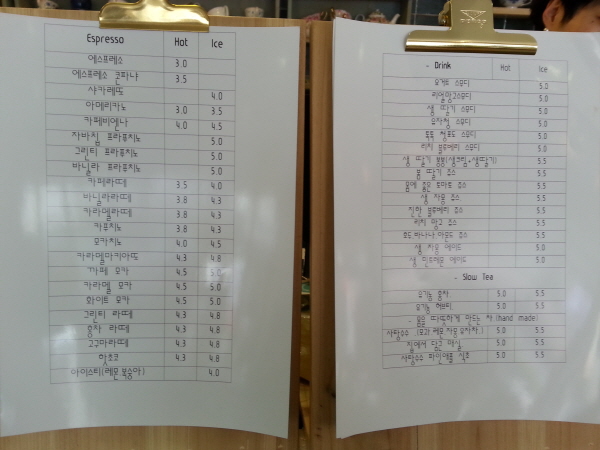 Espresso Hot Ice
에스프레소 3.0
에스프레소 콘파냐 3.5
샤카레또 4.0
아메리카노 3.0 3.5
카페비엔나 4.0 4.5
자바칩 프라푸치노 5.0
그린티 프라푸치노 5.0
바닐라 프라푸치노 5.0
카페라떼 3.5 4.0
바닐라라떼 3.8 4.3
카라멜라떼 3.8 4.3
카푸치노 3.8 4.3
모카치노 4.0 4.5
카라멜마키아또 4.3 4.8
까페 모카 4.5 5.0
카라멜 모카 4.5 5.0
화이트 모카 4.5 5.0
그린티 라떼 4.3 4.8
홍차 라떼 4.3 4.8
고구마라떼 4.3 4.8
핫초코 4.3 4.8
아이스티(레몬,복숭아) 4.0
- Drink Hot Ice
요거트 스무디 5.0
리얼망고스무디 5.0
생 딸기 스무디 5.0
유자청 스무디 5.0
톡톡 청포도 스무디 5.0
리치 블루베리 스무디 5.0
생 딸기 퐁퐁(생크림+생딸기) 5.5
봄 딸기 쥬스 5.5
몸에 좋은 토마토 쥬스 5.5
생 자몽 쥬스 5.5
진한 블루베리 쥬스 5.5
리치 망고 쥬스 5.5
호두,바나나,아몬드 쥬스 5.5
생 자몽 에이드 5.0
생 민트레몬 에이드 5.0
- Slow Tea
유기농 홍차 5.0 5.5
유기농 허브티 5.0 5.5
- 몸을 따뜻하게 만드는 차 (hand made)
사탕수수 (모과 레몬 자몽 유자차) 5.0 5.5
집에서 담근 매실 5.0 5.5
사탕수수 파인애플 식초 5.0 5.5